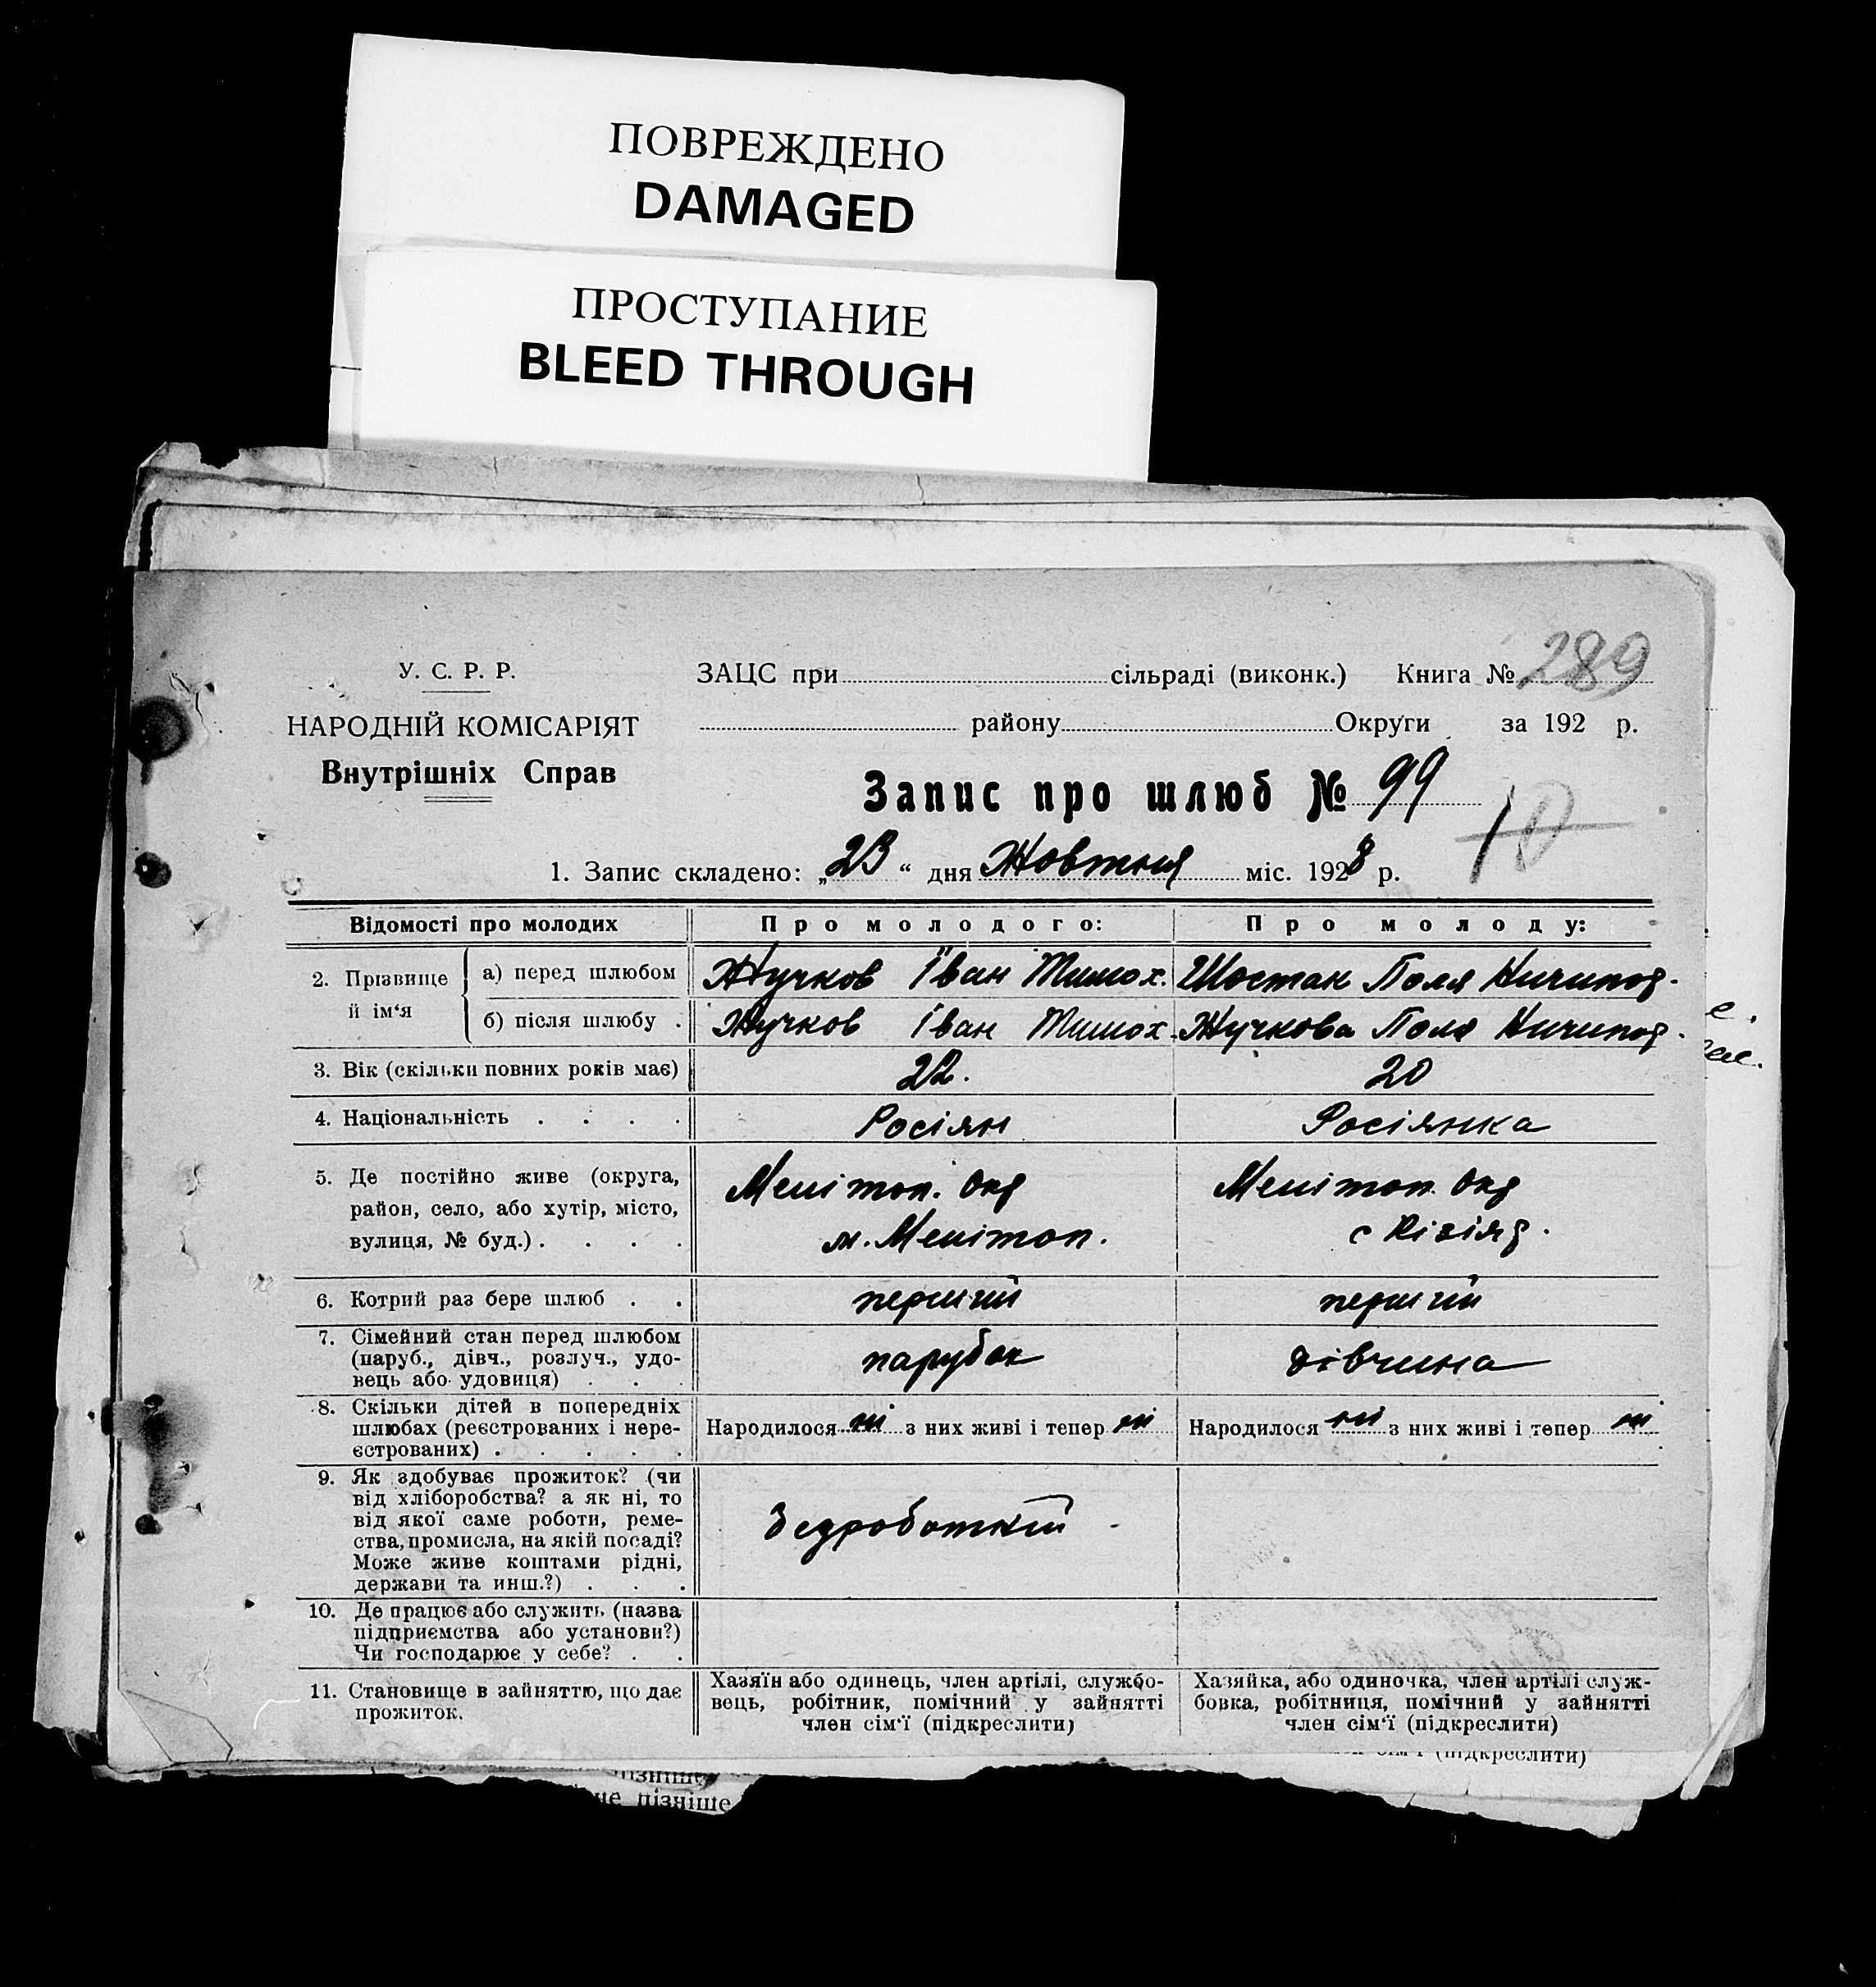 ПОВРЕЖДЕНО
DAMAGED
ПРОСТУПАНИЕ
BLEED THROUGH
289
У. С. Р. Р.
ЗАЦС при сільраді (виконк.) Книга №
НАРОДНІЙ КОМІСАРІЯТ
району Округи за 192 р.
Внутрішніх Справ
Запис про шлюб № 99
10
1. Запис складено: „23“ дня Жовтня міс. 1928 р.
Відомості про молодих
Про молодого:
Про молоду:
2. Прізвище й ім‘я
а) перед шлюбом
Жучков Іван Тимох.
Шостак Поля Ничипор.
б) після шлюбу .
Жучков Іван Тимох.
Жучкова Поля Ничипор.
3. Вік (скільки повних років має)
22.
20
4. Національність . . . .
Росіян
Росіянка
5. Де постійно живе (округа,
район, село, або хутір, місто,
вулиця, № буд.) . . . .
Меліт​оп. Окр
м. Мелітоп.
Мелітоп. Окр
с Кізіяр.
6. Котрий раз бере шлюб . .
перший
перший
7. Сімейний стан перед шлюбом
(паруб., дівч., розлуч., удо-
вець або удовиця) . . .
парубок
дівчина
8. Скільки дітей в попередніх
шлюбах (реєстрованих і нере-
єстрованих) . . . . .
Народилося ні з них живі і тепер ні
Народилося ні з них живі і тепер ні
9. Як здобуває прожиток? (чи
від хліборобства? а як ні, то
від якої саме роботи, реме-
ства, промисла, на якій посаді?
Може живе коштами рідні,
держави та инш.?) . . .
10. Де працює або служить (назва
підприємства або установи?)
Чи господарює у себе? . .
11. Становище в зайняттю, що дає
прожиток.
Хазяїн або одинець, член артілі, службо-
вець, робітник, помічний у зайнятті
член сім‘ї (підкреслити)
Хазяйка, або одиночка, член артілі служ-
бовка, робітниця, помічний у зайнятті
член сім‘ї (підкреслити)
(підкреслити)
пізніше